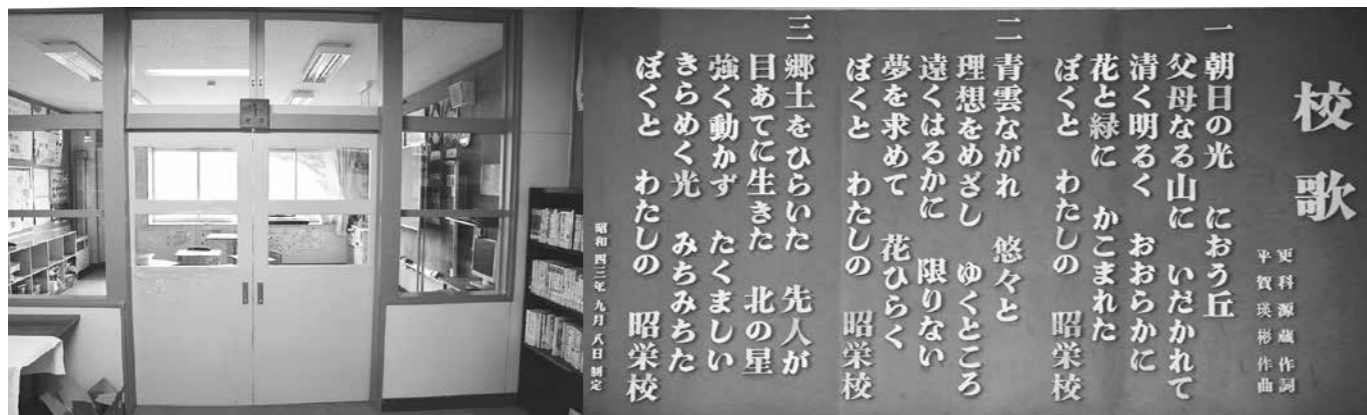 校歌
更科源蔵作詞
平賀瑛彬作曲
一 朝日の光 におう丘
父母なる山に いだかれて
清く明るく おおらかに
花と緑に かこまれた
ぼくと わたしの 昭栄校
二 青雲ながれ 悠々と
理想をめざし ゆくところ
遠くはるかに 限りない
夢を求めて 花ひらく
ぼくと わたしの 昭栄校
三 郷土をひらいた 先人が
目あてに生きた 北の星
強く動かず たくましい
きらめく光 みちみちた
ぼくと わたしの 昭栄校
昭和四三年九月八日制定